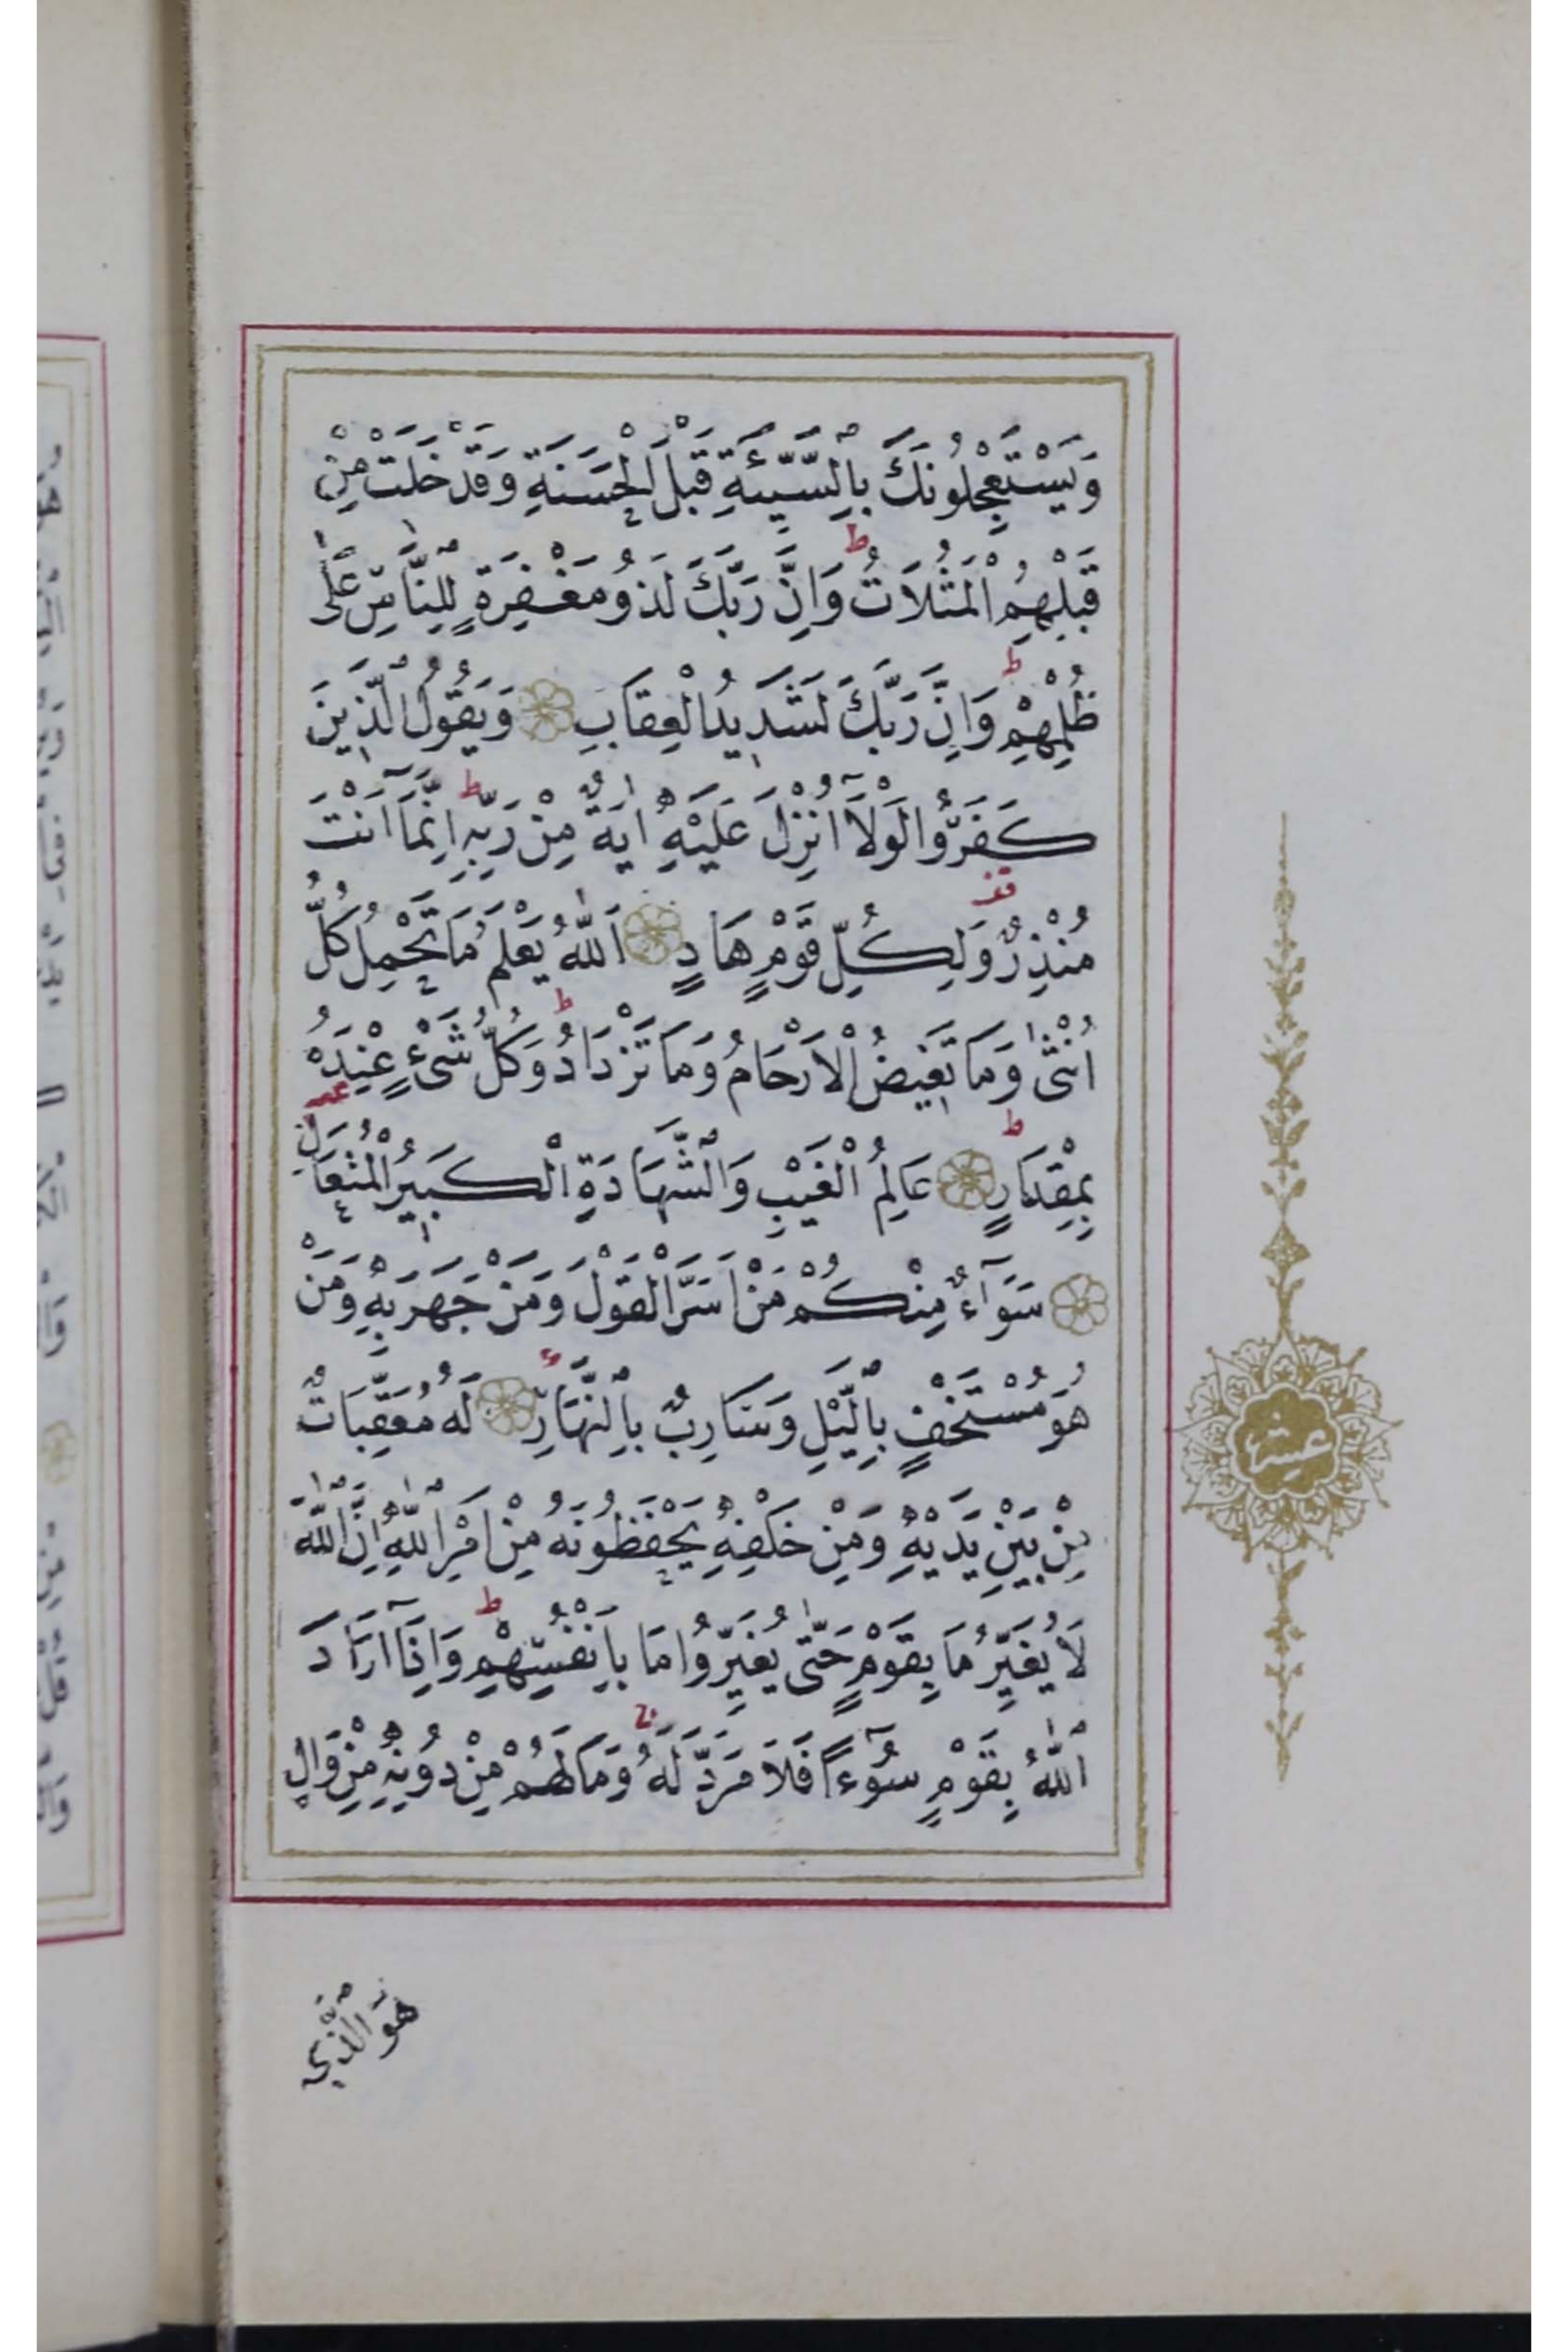 وَيَسْتَعْجِلُونَكَ بِالسَّيِّئَةِ قَبْلَ الْحَسَنَةِ وَقَدْ خَلَتْ مِنْ
ط
قَبْلِهِمُ الْمَثُلَاتُ وَاِنَّ رَبَّكَ لَذُو مَغْفِرَةٍ لِلنَّاسِ عَلٰى
ط
ظُلْمِهِمْ وَاِنَّ رَبَّكَ لَشَدِيدُ الْعِقَابِ وَيَقُولُ الَّذِينَ
ط
كَفَرُوا لَوْلَآ اُنْزِلَ عَلَيْهِ اٰيَةٌ مِنْ رَبِّهِ اِنَّمَآ اَنْتَ
قف
مُنْذِرٌ وَلِكُلِّ قَوْمٍ هَادٍ اَللّٰهُ يَعْلَمُ مَا تَحْمِلُ كُلُّ
ط
اُنْثٰى وَمَا تَغِيضُ الْاَرْحَامُ وَمَا تَزْدَادُ وَكُلُّ شَىْءٍ عِنْدَهُ
ط
بِمِقْدَارٍ عَالِمُ الْغَيْبِ وَالشَّهَادَةِ الْكَبِيرُ الْمُتَعَالِ
سَوَآءٌ مِنْكُمْ مَنْ اَسَرَّ الْقَوْلَ وَمَنْ جَهَرَ بِهِ وَمَنْ
هُوَ مُسْتَخْفٍ بِالَّيْلِ وَسَارِبٌ بِالنَّهَارِ لَهُ مُعَقِّبَاتٌ
عشر
مِنْ بَيْنِ يَدَيْهِ وَمِنْ خَلْفِهِ يَحْفَظُونَهُ مِنْ اَمْرِ اللّٰهِ اِنَّ اللّٰهَ
ط
لَا يُغَيِّرُ مَا بِقَوْمٍ حَتّٰى يُغَيِّرُوا مَا بِاَنْفُسِهِمْ وَاِذَآ اَرَادَ
ج
اللّٰهُ بِقَوْمٍ سُوٓءًا فَلَا مَرَدَّ لَهُ وَمَا لَهُمْ مِنْ دُونِهِ مِنْ وَالٍ
هُوَ الَّذِي